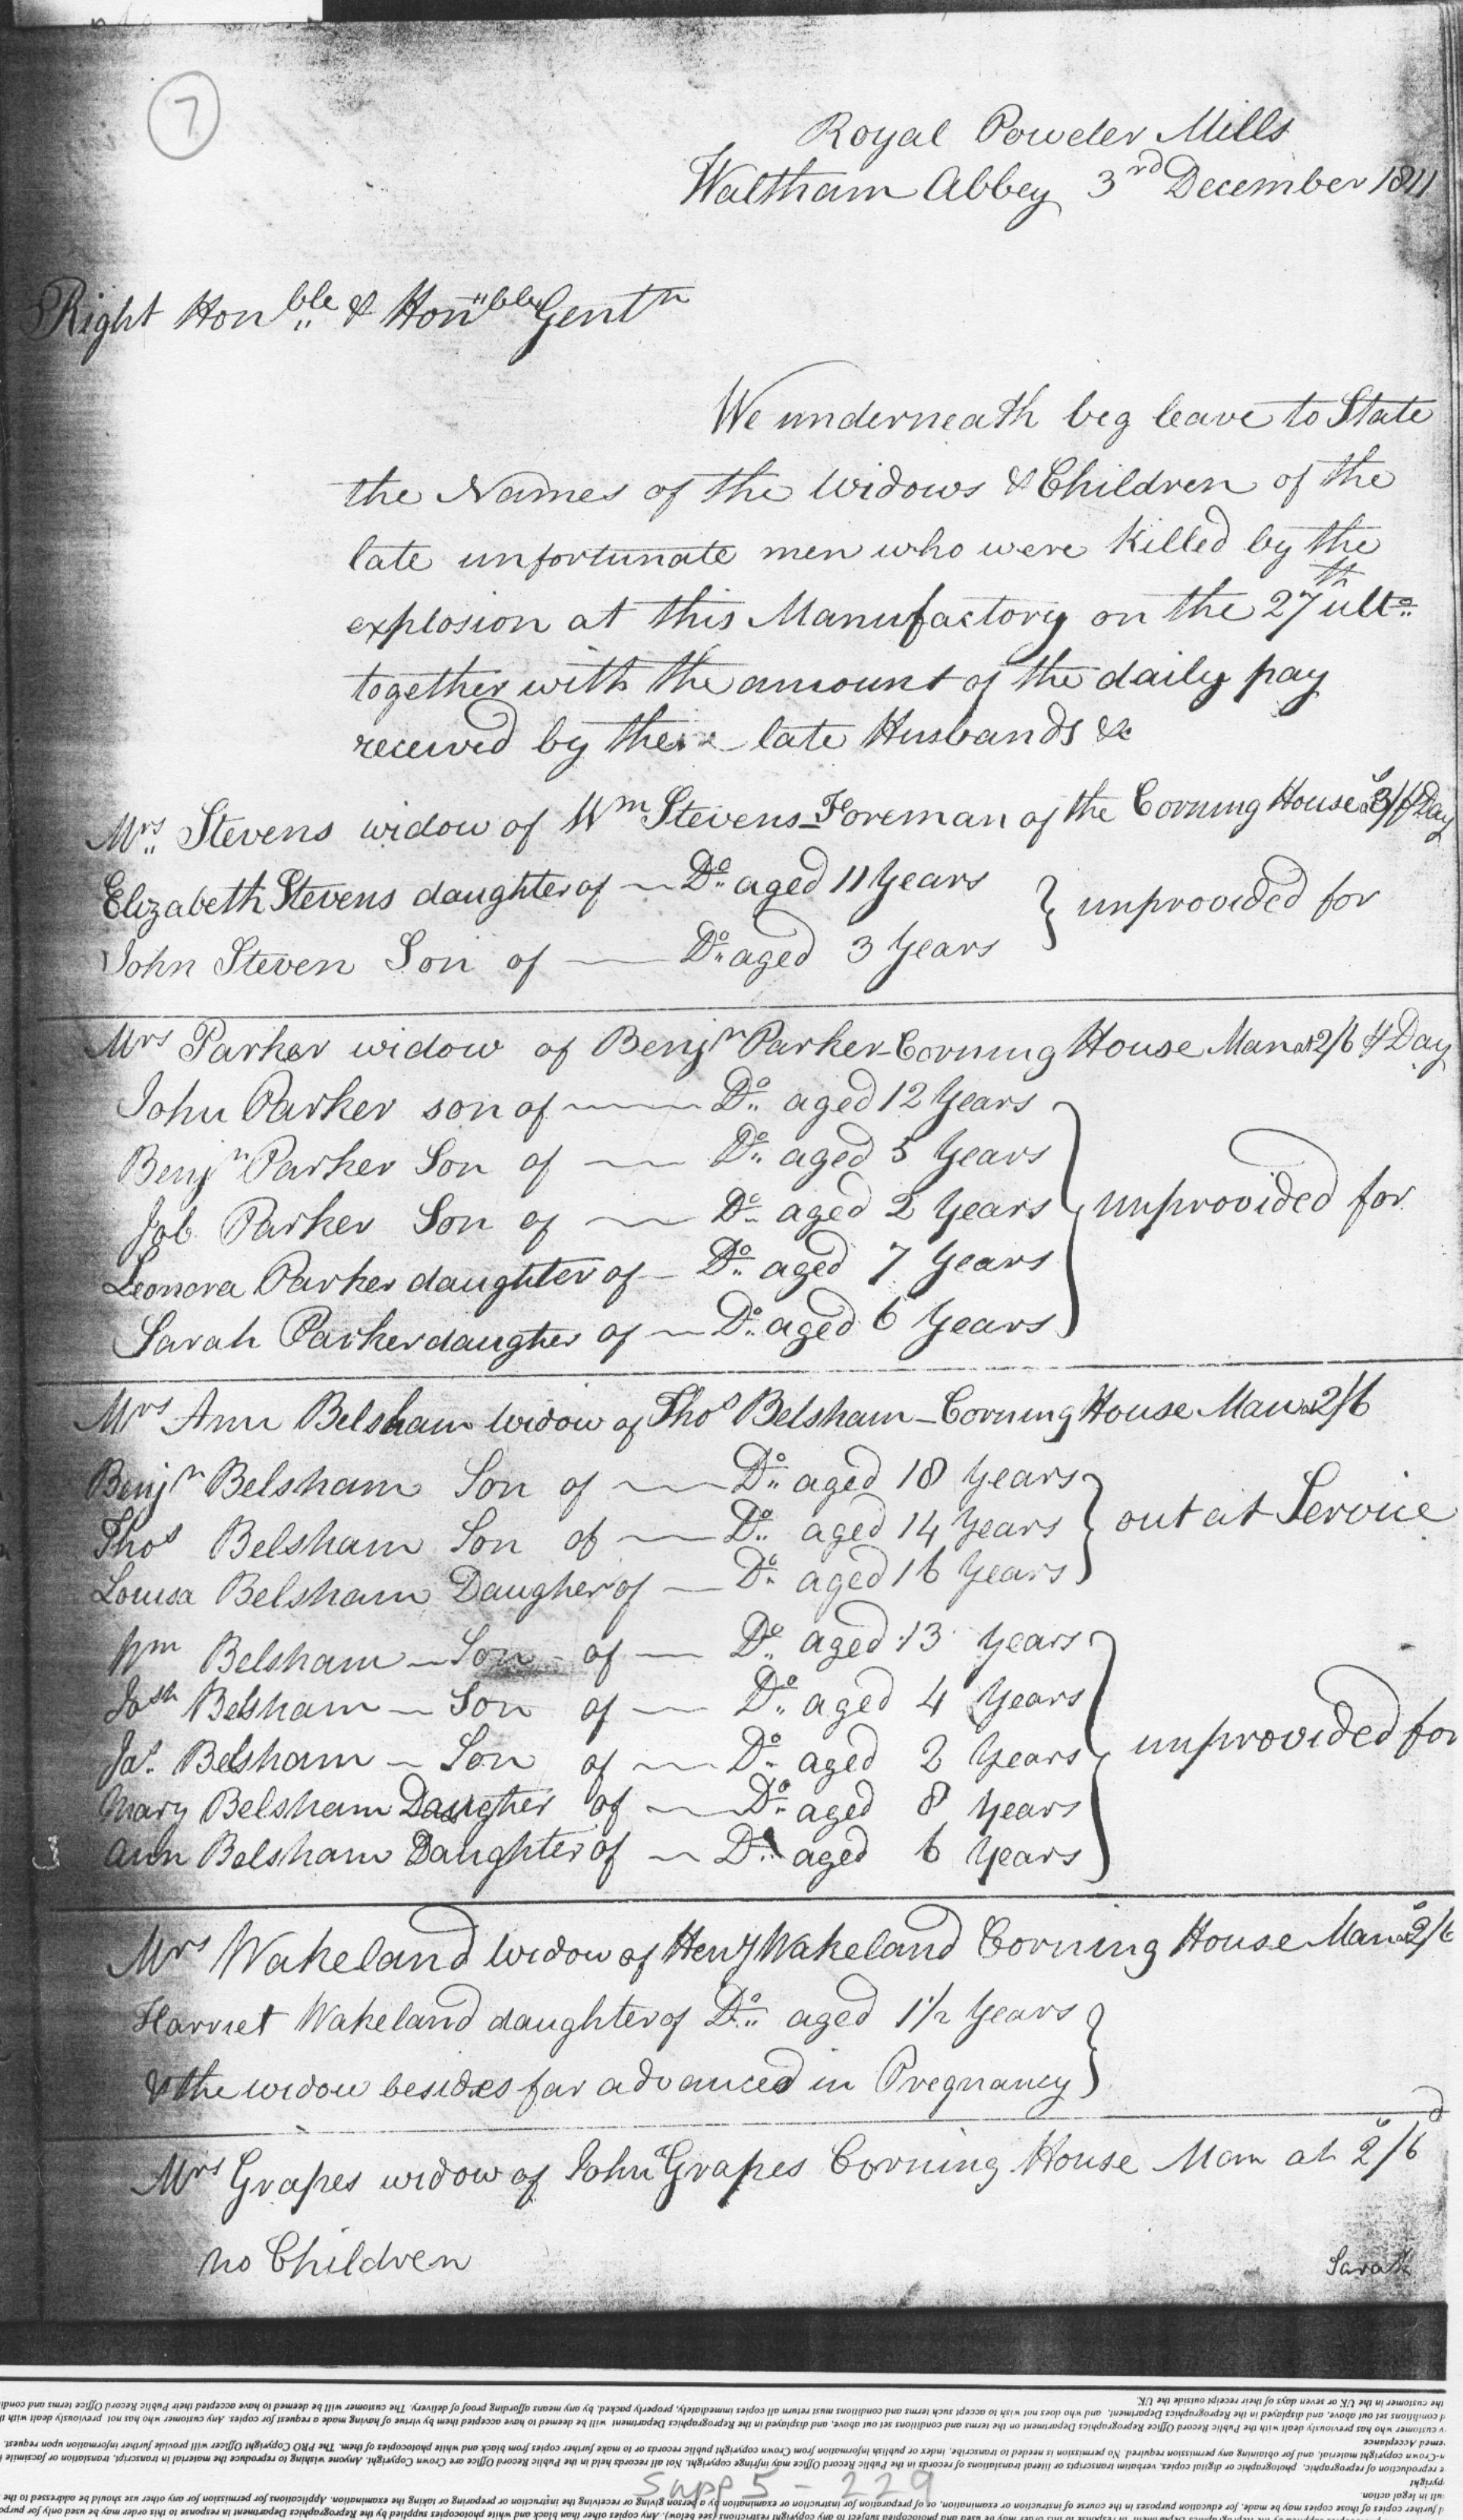 7
Royal Powder Mills
Waltham Abbey 3rd December 1811
Right Honble & Honble Gentn
We underneath beg leave to State
the Names of the Widows & Children of the
late unfortunate men who were Killed by the
explosion at this Manufactory on the 27th ulto
together with the amount of the daily pay
received by their late Husbands &c
Mrs Stevens widow of Wm Stevens Foreman of the Corning House Day
Elizabeth Stevens daughter of Do aged 11 Years
John Steven Son of Do aged 3 Years
} unprovided for
Mrs Parker widow of Benjn Parker Corning House Man at 2/6 Day
John Parker son of Do aged 12 Years
Benjn Parker Son of Do aged 5 Years
Job Parker Son of Do aged 2 Years
Leonora Parker daughter of Do aged 7 Years
Sarah Parker daugter of Do aged 6 Years
} unprovided for
Mrs Ann Belsham Widow of Thos Belsham Corning House Man at 2/6
Benjn Belsham Son of Do aged 18 Years
Thos Belsham Son of Do aged 14 Years
Louisa Belsham Daugher of Do aged 16 Years
} out at Service
Wm Belsham Son of Do aged 13 Years
Josh Belsham Son of Do aged 4 Years
Jas Belsham Son of Do aged 2 Years
Mary Belsham Daugter of Do aged 8 Years
Ann Belsham Daughter of Do aged 6 Years
} unprovided for
Mrs Wakeland Widow of Heny Wakeland Corning House Man at 2/6
Harriet Wakeland daughter of Do aged 1 1/2 Years
& the widow besides far advanced in Pregnancy
Mrs Grapes widow of John Grapes Corning House Man at 2/6
no Children
Sarah
Supp 5 - 229